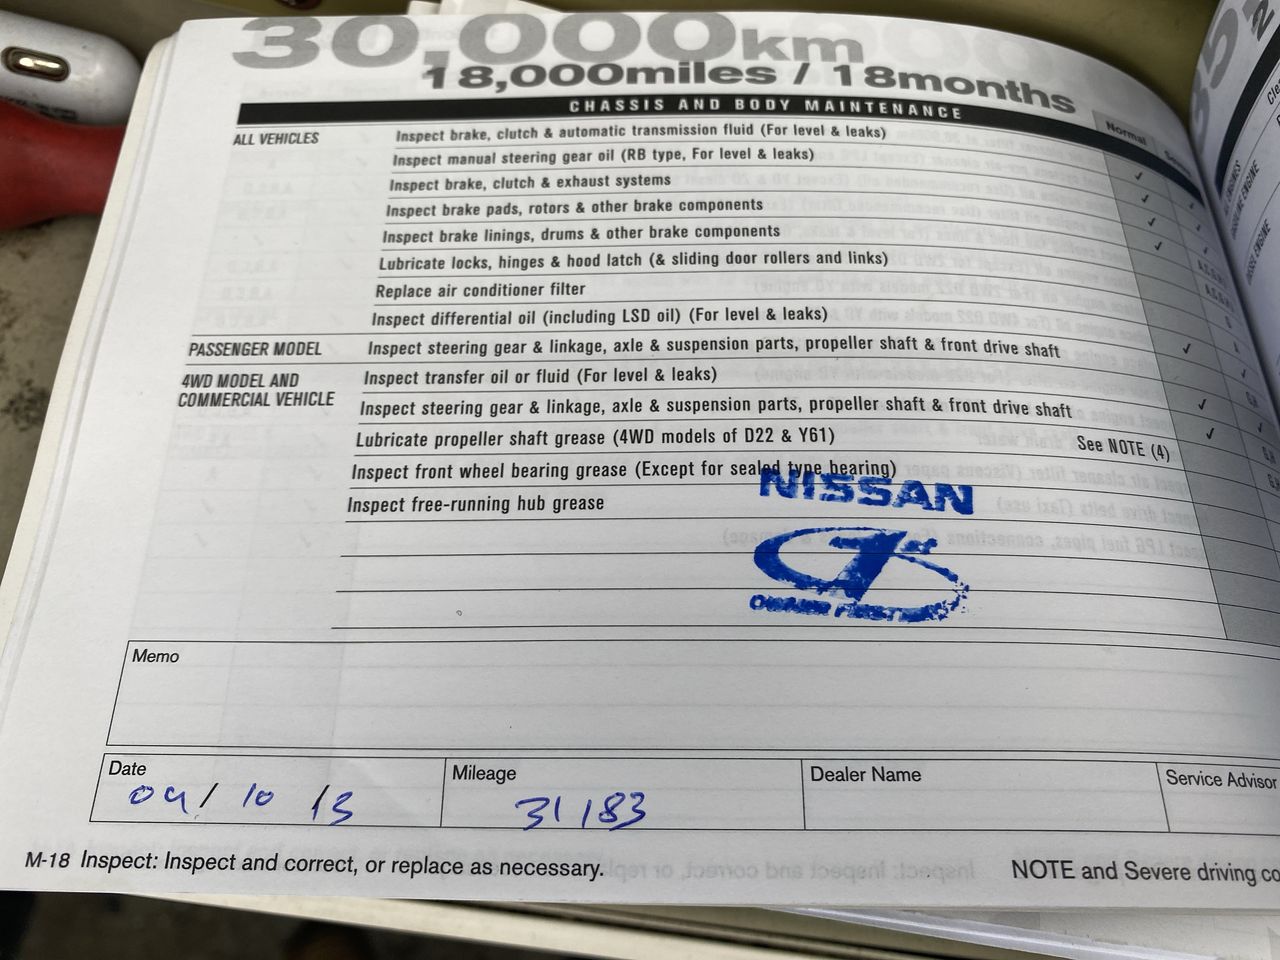 30,000km
18,000miles / 18months
CHASSIS AND BODY MAINTENANCE
Normal
ALL VEHICLES
Inspect brake, clutch & automatic transmission fluid (For level & leaks)
Inspect manual steering gear oil (RB type, For level & leaks)
Inspect brake, clutch & exhaust systems
Inspect brake pads, rotors & other brake components
Inspect brake linings, drums & other brake components
Lubricate locks, hinges & hood latch (& sliding door rollers and links)
Replace air conditioner filter
Inspect differential oil (including LSD oil) (For level & leaks)
PASSENGER MODEL
Inspect steering gear & linkage, axle & suspension parts, propeller shaft & front drive shaft
4WD MODEL AND
COMMERCIAL VEHICLE
Inspect transfer oil or fluid (For level & leaks)
Inspect steering gear & linkage, axle & suspension parts, propeller shaft & front drive shaft
Lubricate propeller shaft grease (4WD models of D22 & Y61) See NOTE (4)
Inspect front wheel bearing grease (Except for sealed type bearing)
Inspect free-running hub grease
NISSAN
1st
Memo
Date
Mileage
Dealer Name
Service Advisor
09/ 10 /13
31183
M-18 Inspect: Inspect and correct, or replace as necessary.
NOTE and Severe driving co